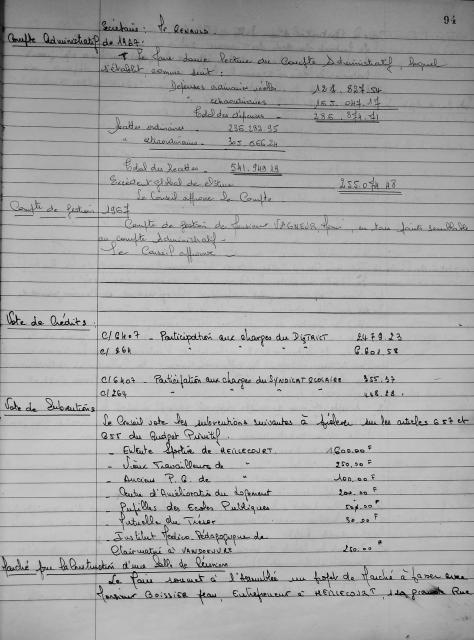 94
Secrétaire : Mr RENAULD
Compte Administratif de 1967 :
Le Maire donne lecture du Compte Administratif, lequel
s'établit comme suit :
Dépenses ordinaires réelles 121.827.54
" extraordinaires - 165.047.17
Total des dépenses - 286.874.71
Recettes ordinaires - 236.292.95
" extraordinaires - 305.656.24
Total des Recettes - 541.949.19
Excédent global de clôture 255.074.48
Le Conseil approuve le Compte
Compte de Gestion 1967
Compte de Gestion de Monsieur VAGNEUR, en tous points semblable
au compte Administratif -
Le Conseil approuve -
Vote de Crédits :
C/ 6407 - Participation aux charges du DISTRICT 2479.23
C/ 264 " " " " 6.601.58
C/ 6407 - Participation aux charges du SYNDICAT SCOLAIRE 355.37
C/ 264 " " " "
Vote de Subventions
Le Conseil vote les subventions suivantes à prélever sur les articles 657 et
655 du Budget Primitif.
- Entente Sportive de HEILLECOURT 1600.00 F
- Vieux Travailleurs de " 250.00 F
- Anciens P.G. de " 100.00 F
- Centre d'Amélioration du Logement 200.00 F
- Pupilles des Ecoles Publiques F
- Mutuelle du Trésor 30.00 F
- Institut Médico-Pédagogique de
Clairmatin à VANDOEUVRE 250.00 F
Marché pour la Construction d'une Salle de Réunion
Le Maire soumet à l'Assemblée un projet de Marché à passer avec
Monsieur BOISSIER Jean, Entrepreneur à HEILLECOURT, Grande Rue